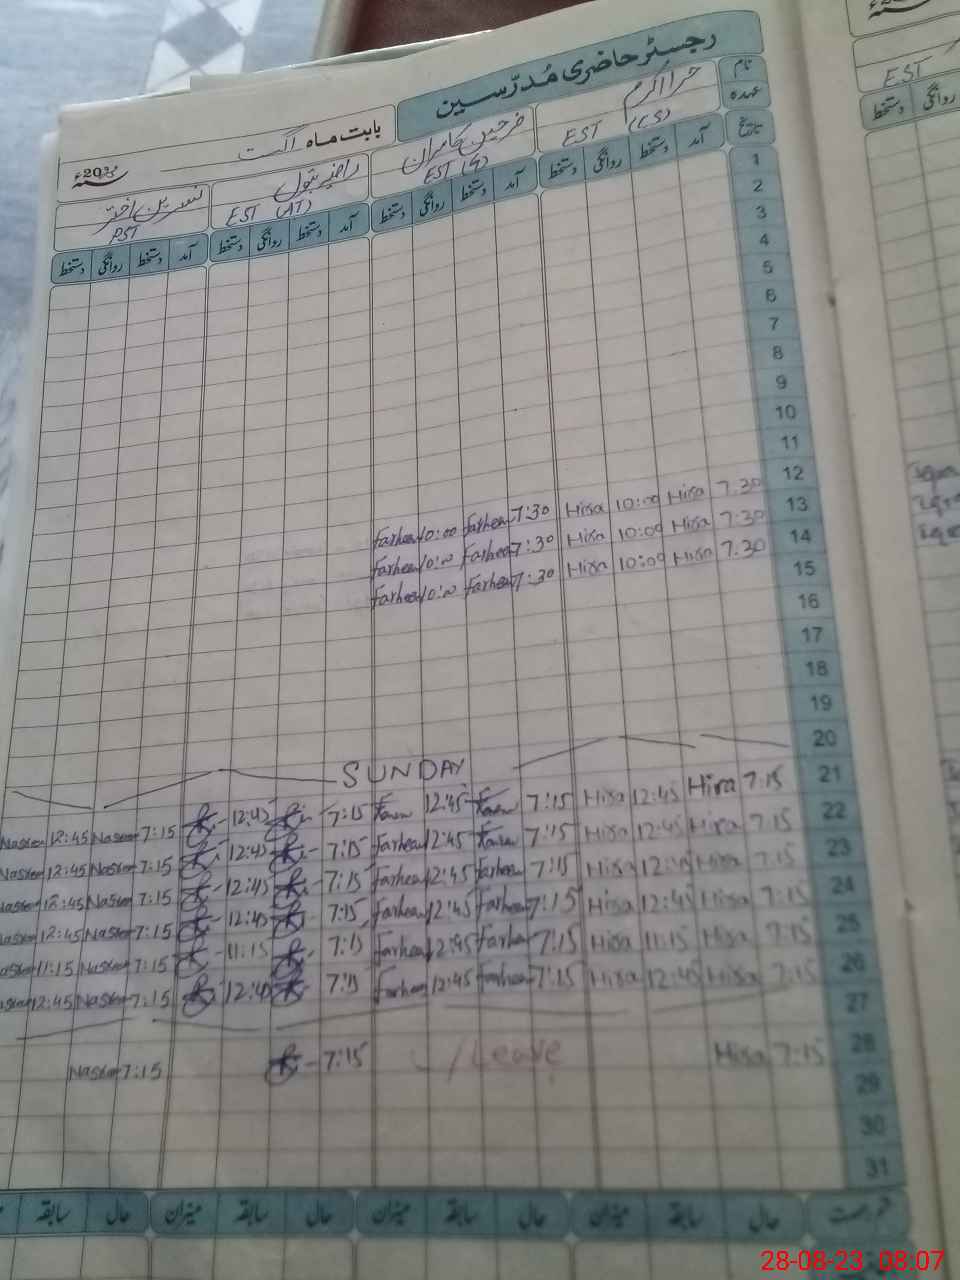 رجسٹر حاضری مُدرّسین
بابت ماہ اگست
20
نام حرا اکرم فرحین کامران راضیہ بتول نسرین اختر
عہدہ EST (CS) EST (G) EST (AT) PST
تاریخ آمد دستخط روانگی دستخط آمد دستخط روانگی دستخط آمد دستخط روانگی دستخط آمد دستخط روانگی دستخط
EST
روانگی دستخط
1
2
3
4
5
6
7
8
9
10
11
12
Farheen 10:00 Farheen 7:30 Hira 10:00 Hira 7:30 13
Farheen 10:00 Farheen 7:30 Hira 10:00 Hira 7:30 14
Farheen 10:00 Farheen 7:30 Hira 10:00 Hira 7:30 15
16
17
18
19
SUNDAY 20
Nasreen 12:45 Nasreen 7:15 12:45 7:15 12:45 7:15 Hira 12:45 Hira 7:15 21
12:45 Nasreen 7:15 12:45 7:15 Farheen 12:45 7:15 Hira 12:45 Hira 7:15 22
12:45 Nasreen 7:15 12:45 7:15 Farheen 12:45 Farheen 7:15 Hira 12:45 Hira 7:15 23
12:45 Nasreen 7:15 12:45 7:15 Farheen 12:45 Farheen 7:15 Hira 12:45 Hira 7:15 24
11:15 Nasreen 7:15 11:15 7:15 Farheen 12:45 Farheen 7:15 Hira 11:15 Hira 7:15 25
12:45 Nasreen 7:15 12:45 7:15 Farheen 12:45 Farheen 7:15 Hira 12:45 Hira 7:15 26
27
Nasreen 7:15 7:15 Leave Hira 7:15 28
29
30
31
رخصت حال سابقہ میزان حال سابقہ میزان حال سابقہ میزان حال سابقہ
28-08-23 08:07